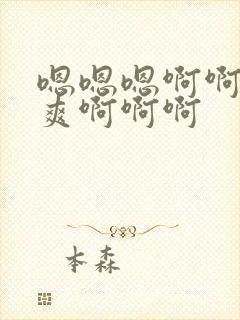 嗯嗯嗯啊啊
爽啊啊啊
本森